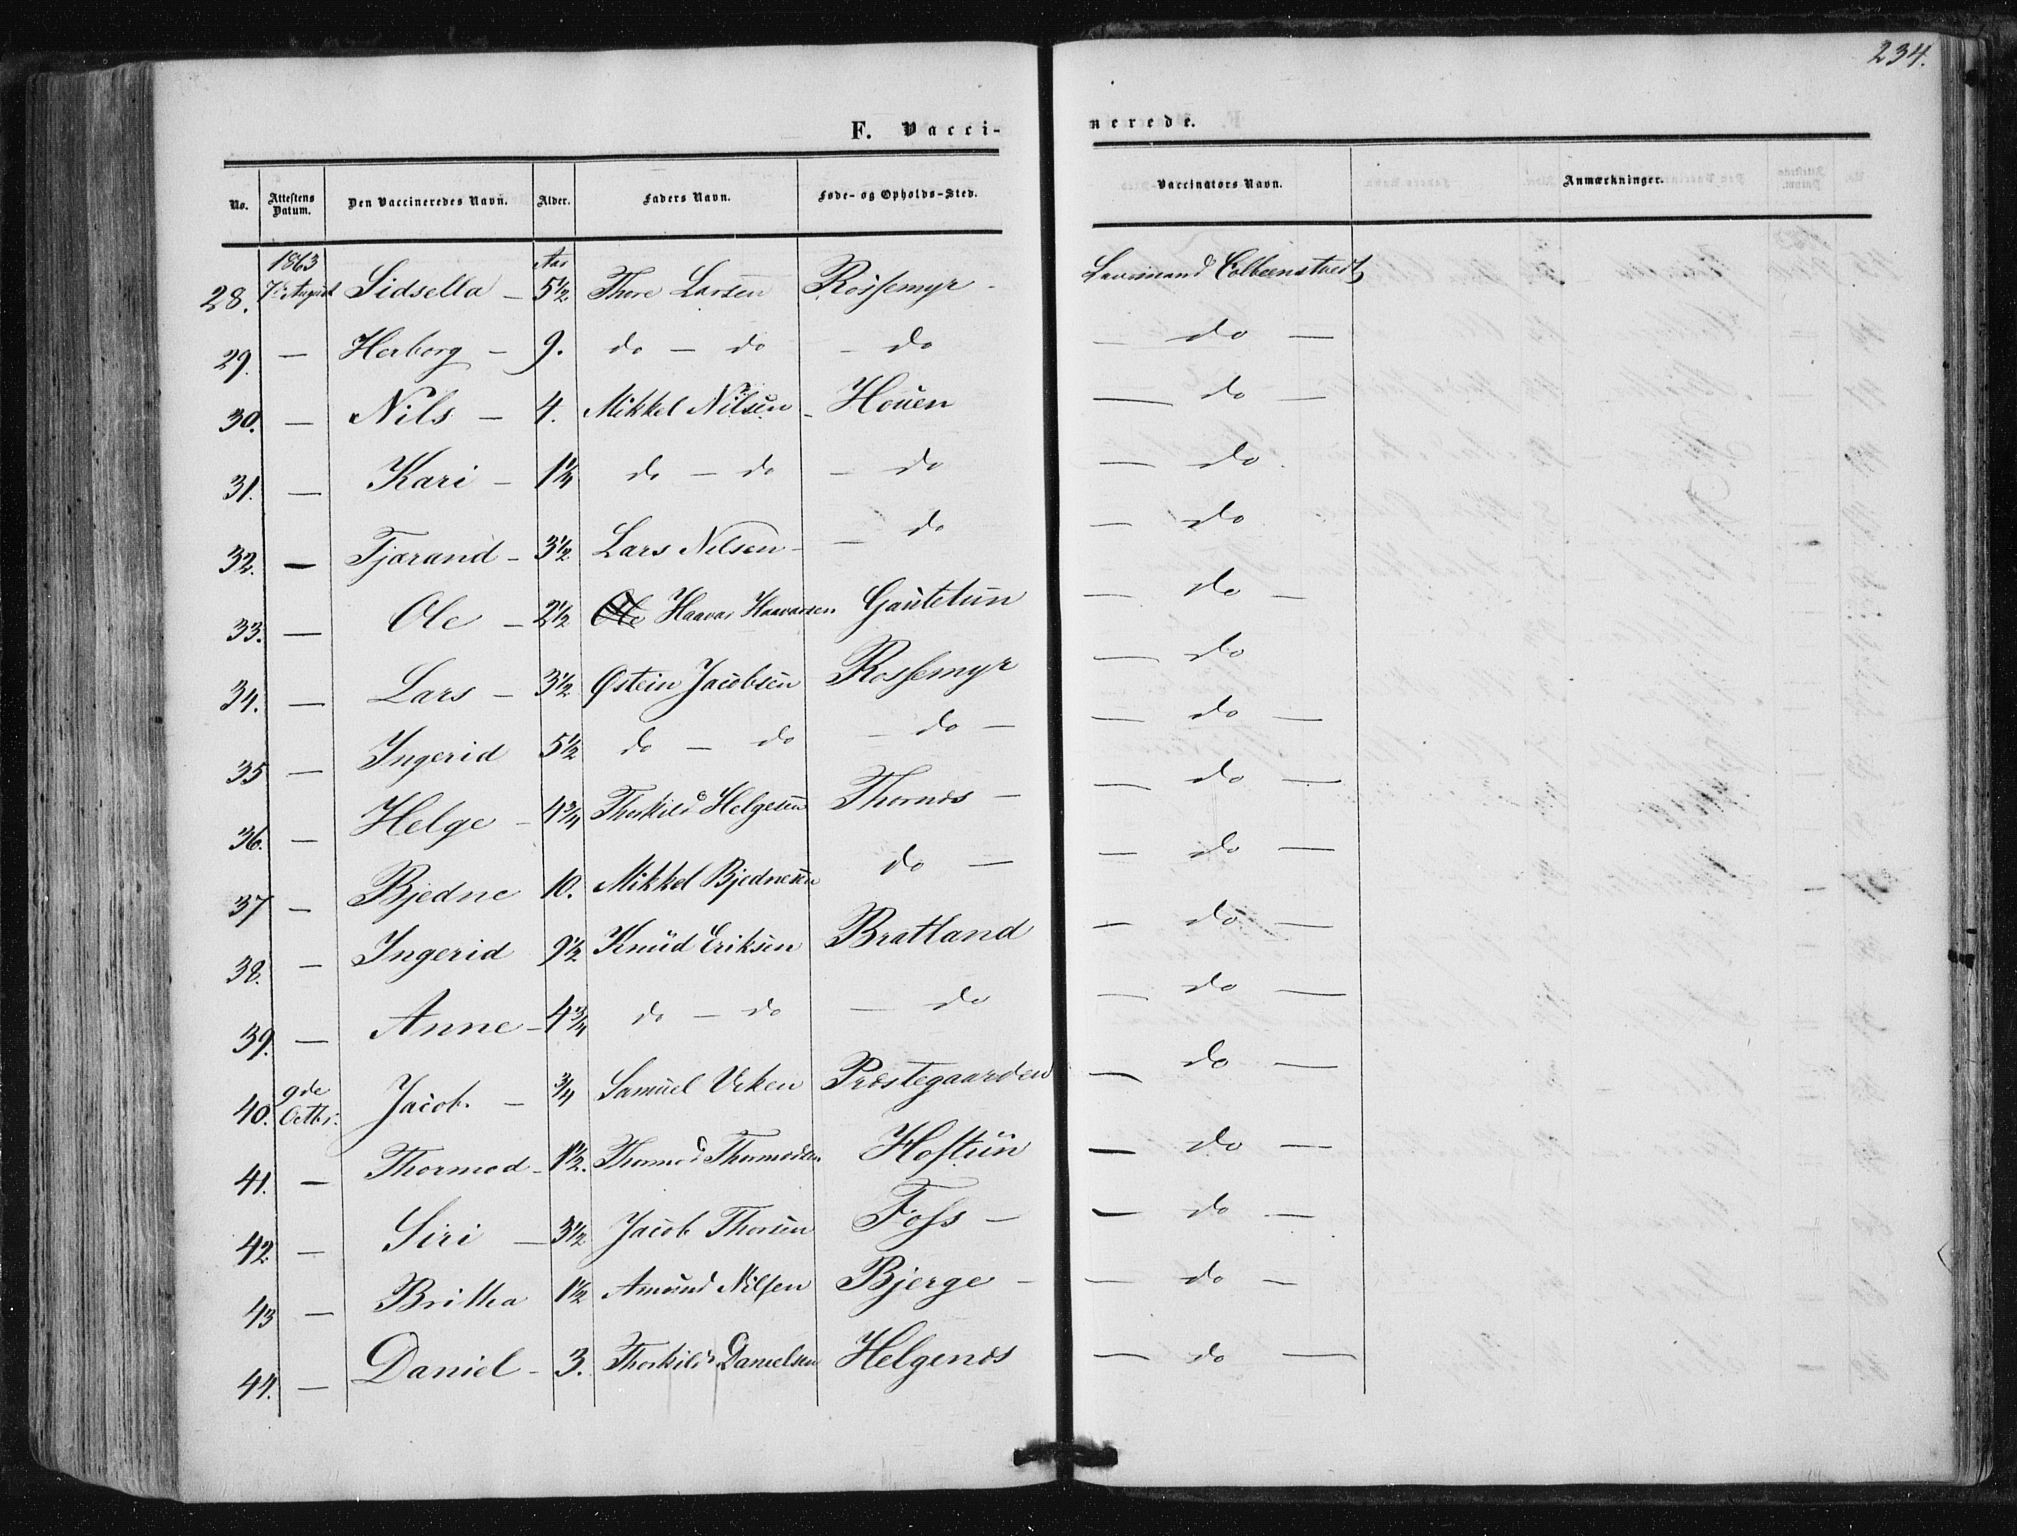 234.
F. Vacci-
nerede.
No. Attestens Datum. Den Vaccineredes Navn. Alder. Faders Navn. Føde- og Opholds-Sted. Vaccinators Navn. Anmærkninger.
1863 Aar
28. 7de August Sidsella - 5½ Thore Larsen Rossemyr - Lensmand
29. — Herborg - 9. do - do - do — do —
30. — Nils - 4. Mikkel Nilsen - Houen — do —
31. — Kari - 1¼ do - do - do — do
32. — Tjærand - 3½ Lars Nilsen - — do — do
33. — Ole - 2½ Ole Haavar Haavarsen Gautetun — do -
34. — Lars - 3½ Østein Jacobsen Rossemyr — do
35 — Ingerid 5½ do — do - do — — do —
36. — Helge - 4¾ Thorkild Helgesen Thornes — — do —
37 — Bjedne 10. Mikkel Bjednesen do — — do —
38. — Ingerid 9½ Knud Eriksen Bratland - do —
39. — Anne - 4¾ do - do — do — do —
40. 9de Octbr: Jacob. - ¾ Samuel Præstegaarden — do —
41. — Thormod - 1½. Thormod Thormodsen Hoftun — do —
42. — Siri — 3½ Jacob Thorsen Foss — — do —
43 — Britha 1½ Amund Nilsen Bjerge - — do —
44. — Daniel - 3. Thorkild Danielsen Helgenes — do —